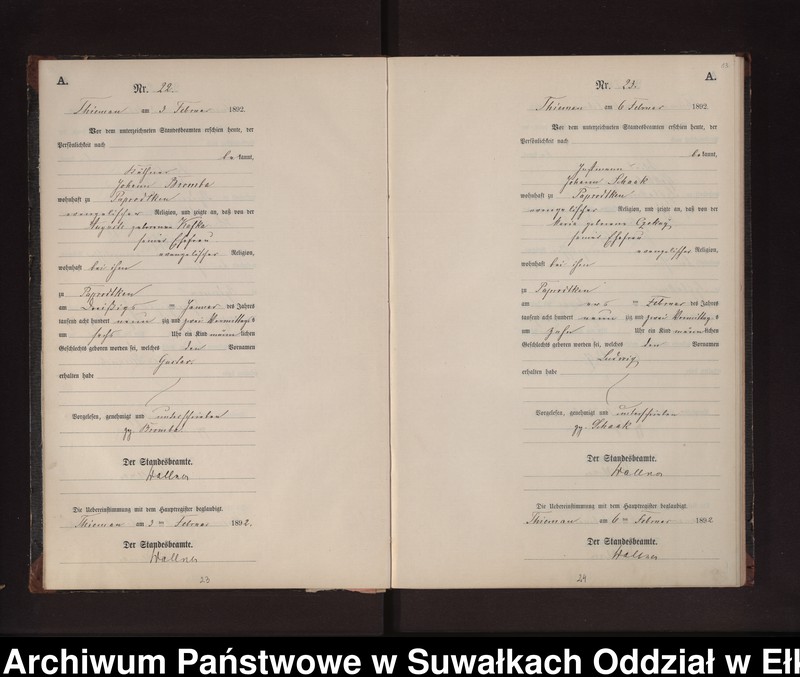 A.
Nr. 22.
Thieman am 3 Februar 1892.
Vor dem unterzeichneten Standesbeamten erschien heute, der
Persönlichkeit nach
be kannt,
Johann Bromba
wohnhaft zu Paprodtken
evangelischer Religion, und zeigte an, daß von der
geborenen Kofka
seiner Ehefrau
evangelischer Religion,
wohnhaft bei ihm
zu Paprodtken
am Dreißigs ten Januar des Jahres
tausend acht hundert neun zig und zwei Vormittags
um sechs Uhr ein Kind männ lichen
Geschlechts geboren worden sei, welches den Vornamen
Gustav
erhalten habe
Vorgelesen, genehmigt und unterschrieben
gz. Bromba
Der Standesbeamte.
Wallner
Die Uebereinstimmung mit dem Hauptregister beglaubigt.
Thieman am 3 ten Februar 1892.
Der Standesbeamte.
Wallner
23
A.
Nr. 23.
Thieman am 6 Februar 1892.
Vor dem unterzeichneten Standesbeamten erschien heute, der
Persönlichkeit nach
be kannt,
Instmann
Johann Schaak
wohnhaft zu Paprodtken
evangelischer Religion, und zeigte an, daß von der
geborene
seiner Ehefrau
evangelischer Religion,
wohnhaft bei ihm
zu Paprodtken
am ers ten Februar des Jahres
tausend acht hundert neun zig und zwei Vormittags
um zehn Uhr ein Kind männ lichen
Geschlechts geboren worden sei, welches den Vornamen
Ludwig
erhalten habe
Vorgelesen, genehmigt und unterschrieben
gz. Schaak
Der Standesbeamte.
Wallner
Die Uebereinstimmung mit dem Hauptregister beglaubigt.
Thieman am 6 ten Februar 1892
Der Standesbeamte.
Wallner
24
Archiwum Państwowe w Suwałkach Oddział w Ełk